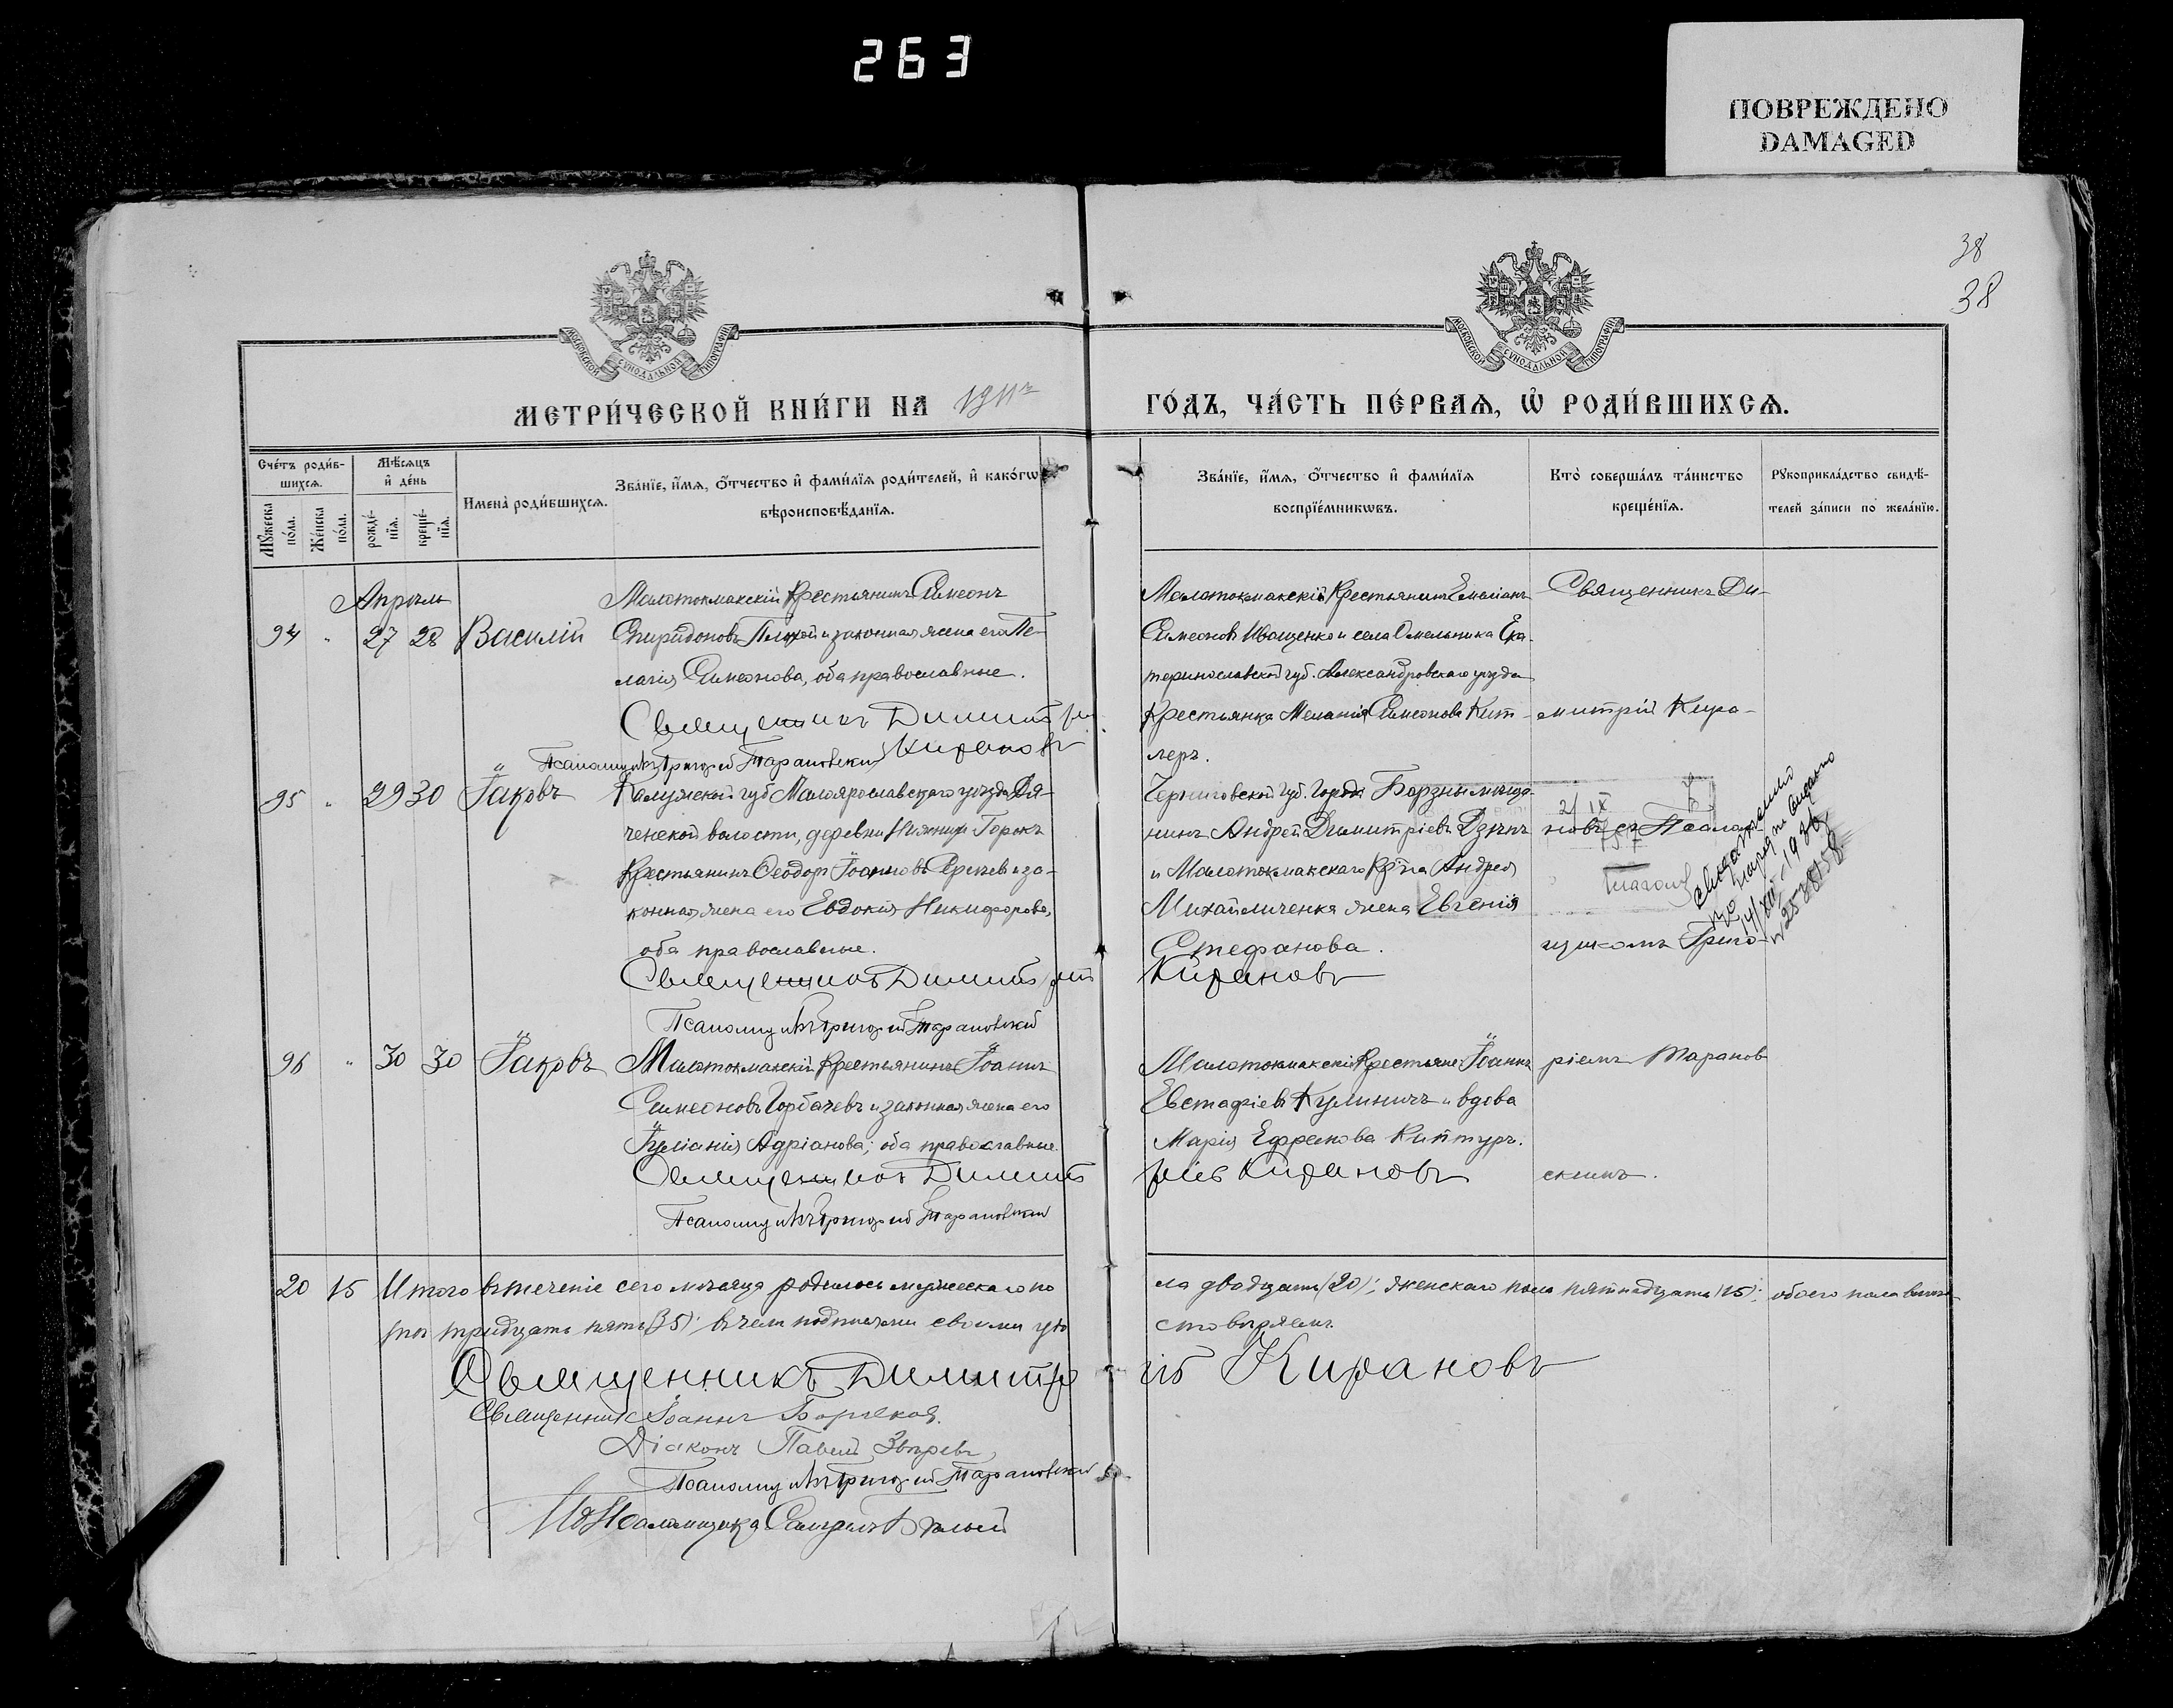 263
ПОВРЕЖДЕНО
DAMAGED
38
38
МОСКОВСКОЙ СѴНОДАЛЬНОЙ ТИПОГРАФІИ
МОСКОВСКОЙ СѴНОДАЛЬНОЙ ТИПОГРАФІИ
МЕТРИ́ЧЕСКОЙ КНИ́ГИ НА 1911 г
ГО́ДЪ, ЧА́СТЬ ПЕ́РВАѦ, Ѡ҆ РОДИ́ВШИХСѦ.
Сче́тъ роди́в-
шихсѧ.
Мꙋжеска по́ла.
Же́нска по́ла.
Мѣ́сѧцъ
и҆ де́нь
рожде́-
нїѧ.
креще́-
нїѧ.
Имена̀ роди́вшихсѧ.
Зва́нїе, и҆́мѧ, ѻ҆́тчество и҆ фами́лїѧ роди́телей, и҆ како́гѡ
вѣроисповѣ́данїѧ.
Зва́нїе, и҆́мѧ, ѻ҆́тчество и҆ фами́лїѧ
воспрїе́мникѡвъ.
Кто̀ соверша́лъ та́инство
креще́нїѧ.
Рꙋкоприкла́дство свидѣ́-
телей за́писи по жела́нїю.
Апрѣль
94 " 27 28 Василій
Малотокмакскій Крестьянинъ Симеонъ
Спиридоновъ Плохой и законная жена его Пе-
лагія Симеонова, оба православные.
Священникъ Димитрій
Кирановъ
Псаломщикъ Григорій Тарановскій
Малотокмакскій Крестьянинъ Емеліанъ
Симеоновъ Иващенко и села Омельника Ека-
теринославской губ. Александровскаго уезда
Крестьянка Меланія Симеонова Кит-
леръ.
Священникъ Ди-
митрій Кира-
95 " 29 30 Іаковъ
Калужской губ. Малоярославскаго уезда
ченской волости, деревни Нижнихъ Горокъ
Крестьянинъ Ѳеодоръ Іоанновъ и за-
конная жена его Евдокія Никифорова,
оба православные.
Священникъ Димитрій
Кирановъ
Псаломщикъ Григорій Тарановскій
Черниговской губ. города Борзны мѣща-
нинъ Андрей Димитріевъ
и Малотокмакскаго Кр-на Андрея
Михайличенка жена Евгенія
Стефанова.
новъ съ Псалом-
щикомъ Григо-
21 IX
14/XII-1936
№ 2538158
96 " 30 30 Іаковъ
Малотокмакскій Крестьянинъ Іоаннъ
Симеоновъ Горбачевъ и законная жена его
Іуліанія Адріанова; оба православные.
Священникъ Димит
рій Кирановъ
Псаломщикъ Григорій Тарановскій
Малотокмакскіе Крестьяне Іоаннъ
Евстафіевъ Кулиничъ и вдова
Марія Ефремова
ріемъ Таранов-
скимъ.
20 15 Итого въ теченіе сего мѣсяца родилось мужескаго по
ла двадцать (20); женскаго пола пятнадцать (15); обоего пола
тридцать пять (35); въ чемъ подписями своими удо
стовѣряемъ.
Священникъ Димитрій Кирановъ
Священникъ Іоаннъ
Діаконъ Павелъ Звѣревъ
Псаломщикъ Григорій Тарановскій
Псаломщика